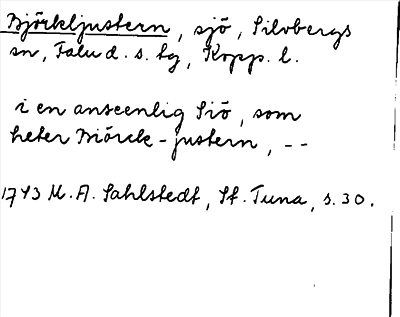 Björkljustern, sjö, Silvbergs
sn, Falu d. s. hg, Kopp. l.
i en anseenlig Siö, som
heter Biörck-justern, --
1743 M. A. Sahlstedt, St. Tuna, s. 30.